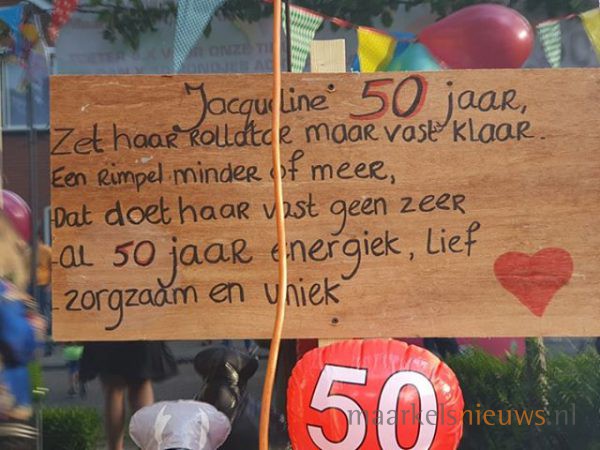 Jacqueline 50 jaar,
Zet haar rollator maar vast klaar.
Een rimpel minder of meer,
-Dat doet haar vast geen zeer
-al 50 jaar energiek, lief
-zorgzaam en uniek
50
maarkelsnieuws.nl